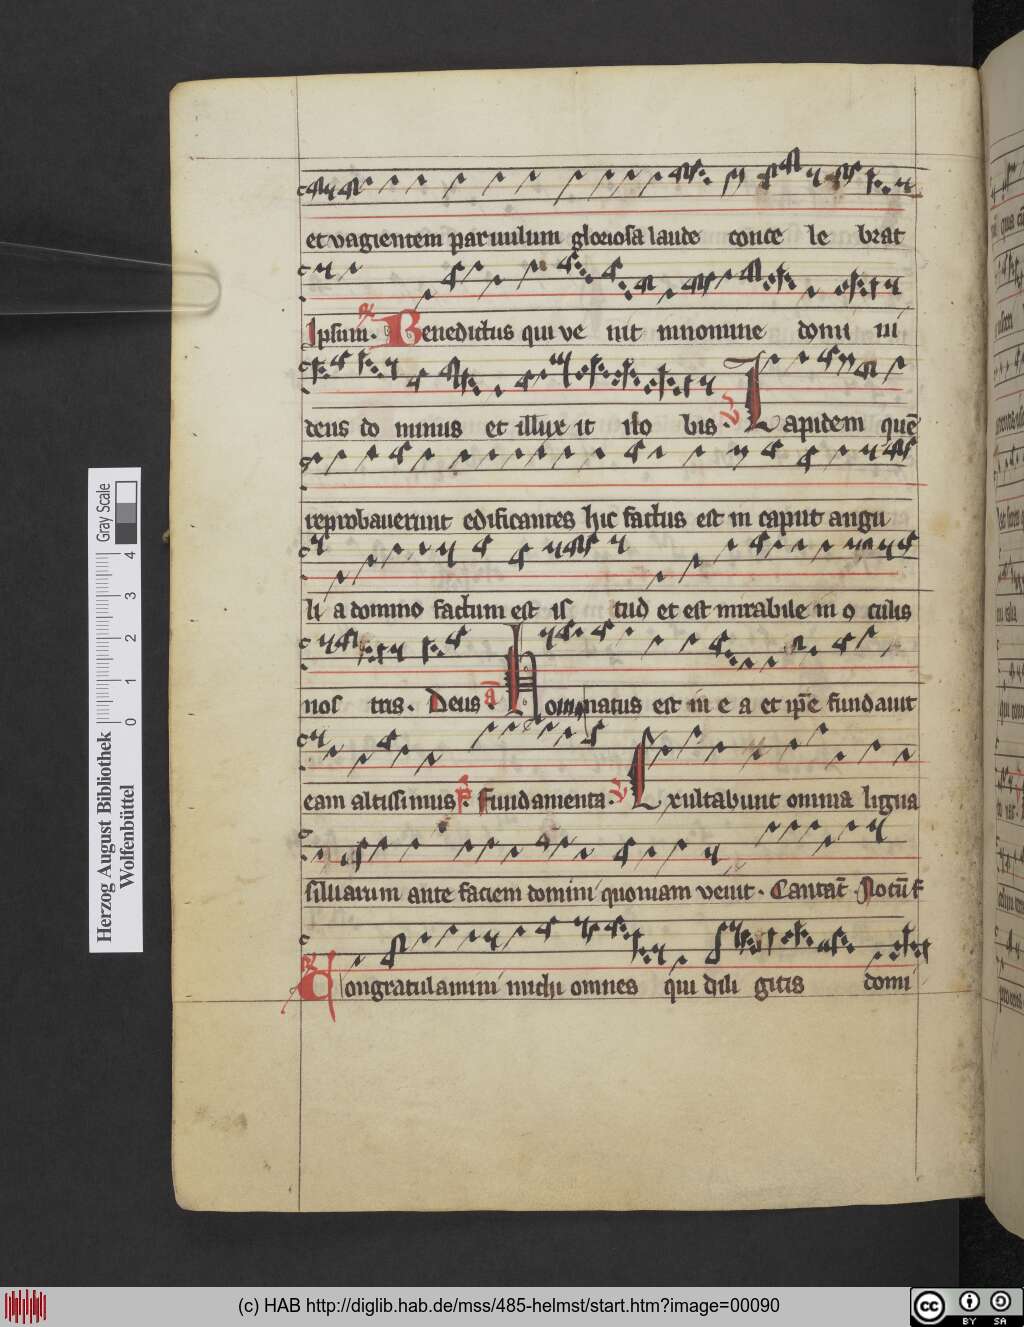 et vagientem paruulum gloriosa laude conce le brat
Ipsum. R Benedictus qui ve nit innomine domi ni
deus do minus et illux it no bis. V Lapidem quē
reprobauerunt edificantes hic factus est in caput angu
li a domino factum est is tud et est mirabile in o culis
nos tris. Deus. a Homo natus est in e a et ip̄e fundauit
eam altissimus. p̄ fundamenta. V Exultabunt omnia ligna
siluarum ante faciem domini quoniam venit. Cantat̄. Notū f
R Congratulamini michi omnes qui dili gitis domi
Gray Scale
0 1 2 3 4
Herzog August Bibliothek
Wolfenbüttel
(c) HAB http://diglib.hab.de/mss/485-helmst/start.htm?image=00090
cc BY SA